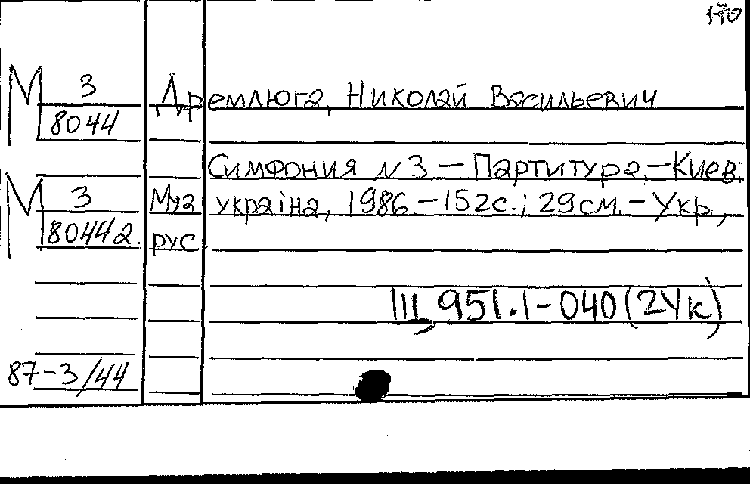 М 3
8044
Дремлюга, Николай Васильевич
Симфония N3 – Партитура. – Киев:
М 3
80442
Муз україна, 1986. – 152с.; 29см. – Укр,
рус
Ш, 951.1-040(2Ук)
87-3/44